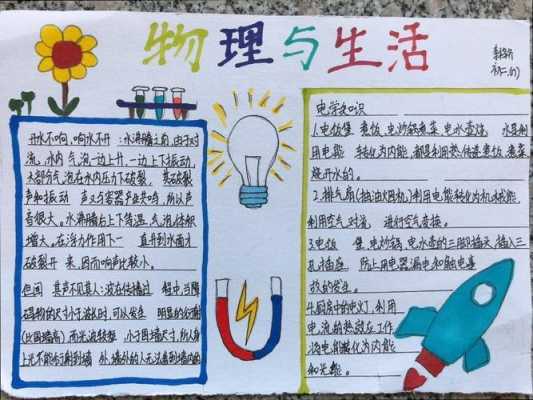 物理与生活
初二(1)
开水不响,响水不开:水沸腾之前,由于对
流,水内气泡一边上升,一边上下振动,
大部分气泡在水内压力下破裂,其破裂
声和振动声又与容器产生共鸣,所以声
音很大。水沸腾后上下等温,气泡体积
增大,在浮力作用下一直升到水面才
破裂开来,因而响声比较小。
但闻其声不见其人:波在传播过程中,当障
碍物的尺寸小于波长时,可以发生明显的衍射
(比围墙高)而光波较短,小于围墙尺寸,所人身
上光不能衍射到墙外,墙外的人无法看到墙内的
电学知识
1.电饭煲煮饭,电炒锅煮菜,电水壶烧水是利
用电能转化为内能,都是利用热传递煮饭、煮菜、
烧开水的。
2.排气扇(抽油烟机)利用电能转化为机械能,
利用空气对流进行空气变换。
3.电饭煲、电炒锅、电水壶的三脚插头,插入三
孔插座,防止用电器漏电和触电事
故的发生。
4.厨房中的电灯,利用
电流的热效应工作,
将电能转化为内能
和光能。